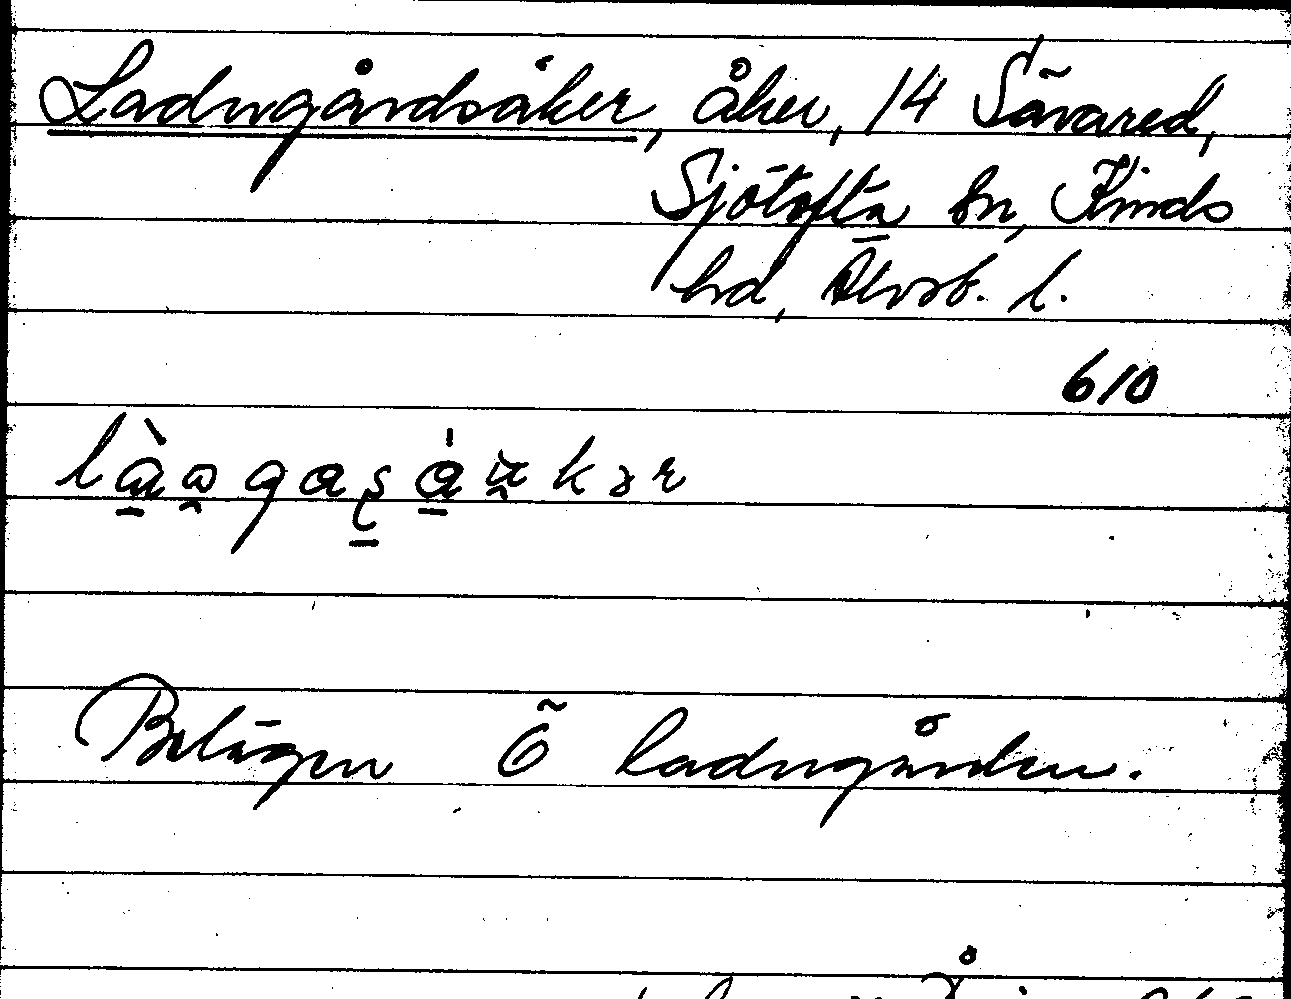 Ladugårdsåker, åker, 14 Sävared,
Sjötofta sn, Kinds
hd, Älvsb. l.
610
Belägen Ö ladugården.